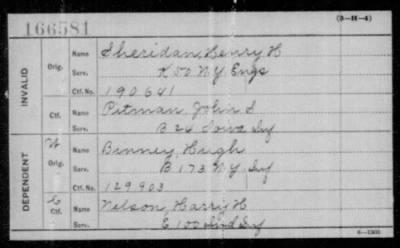 166581
(3-H-4)
INVALID
Orig.
Name Sheridan, Henry H
Serv. K 50 N.Y. Engs
Ctf. No. 190641
Ctf.
Name Pitman, John S
Serv. B 24 Iowa Inf
DEPENDENT
W
Orig.
Name Binney, Hugh
Serv. B 173 N.Y. Inf
Ctf. No. 129903
C
Ctf.
Name Nelson, Harry H
Serv. C 100 Ind Inf
6-1300